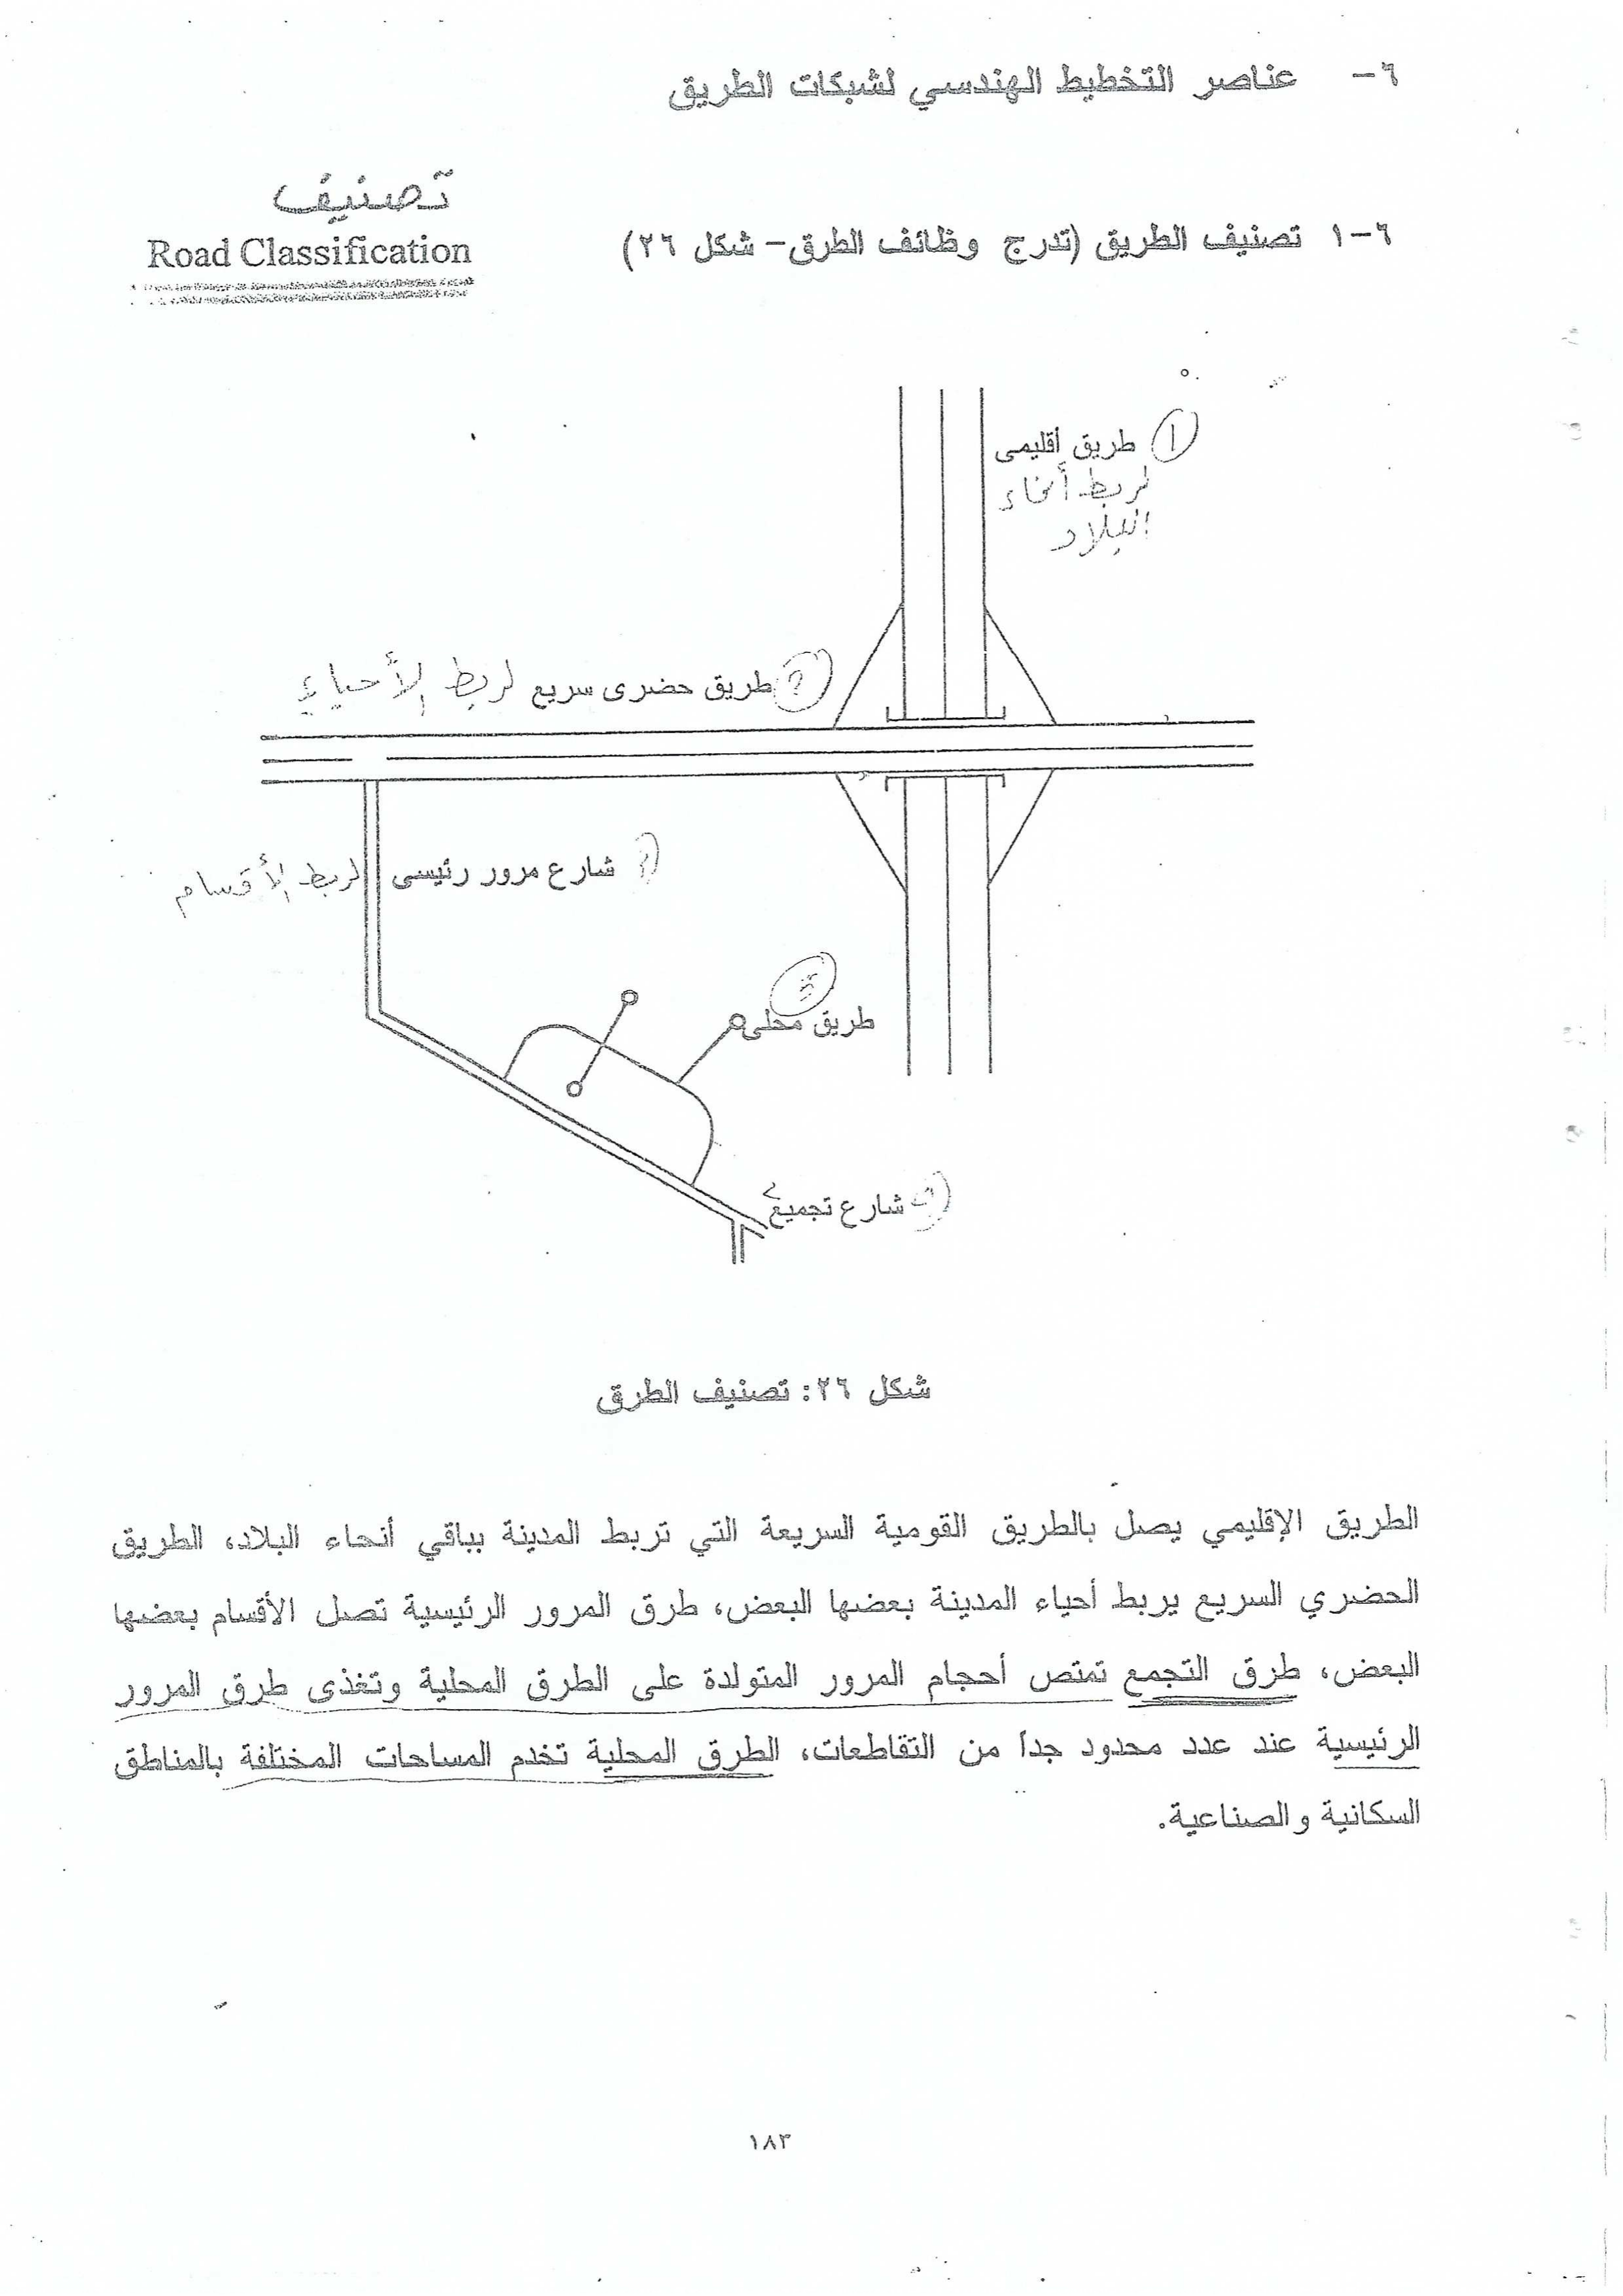 ٦- عناصر التخطيط الهندسي لشبكات الطريق
تصنيف
٦-١ تصنيف الطريق (تدرج وظائف الطرق- شكل ٢٦)
Road Classification
١ طريق أقليمى
لربط أنحاء
البلاد
طريق حضرى سريع لربط الأحياء
شارع مرور رئيسى لربط الأقسام
طريق محلى
شارع تجميع
شكل ٢٦: تصنيف الطرق
الطريق الإقليمي يصل بالطريق القومية السريعة التي تربط المدينة بباقي أنحاء البلاد، الطريق
الحضري السريع يربط أحياء المدينة بعضها البعض، طرق المرور الرئيسية تصل الأقسام بعضها
البعض، طرق التجمع تمتص أحجام المرور المتولدة على الطرق المحلية وتغذى طرق المرور
الرئيسية عند عدد محدود جداً من التقاطعات، الطرق المحلية تخدم المساحات المختلفة بالمناطق
السكانية والصناعية.
١٨٣